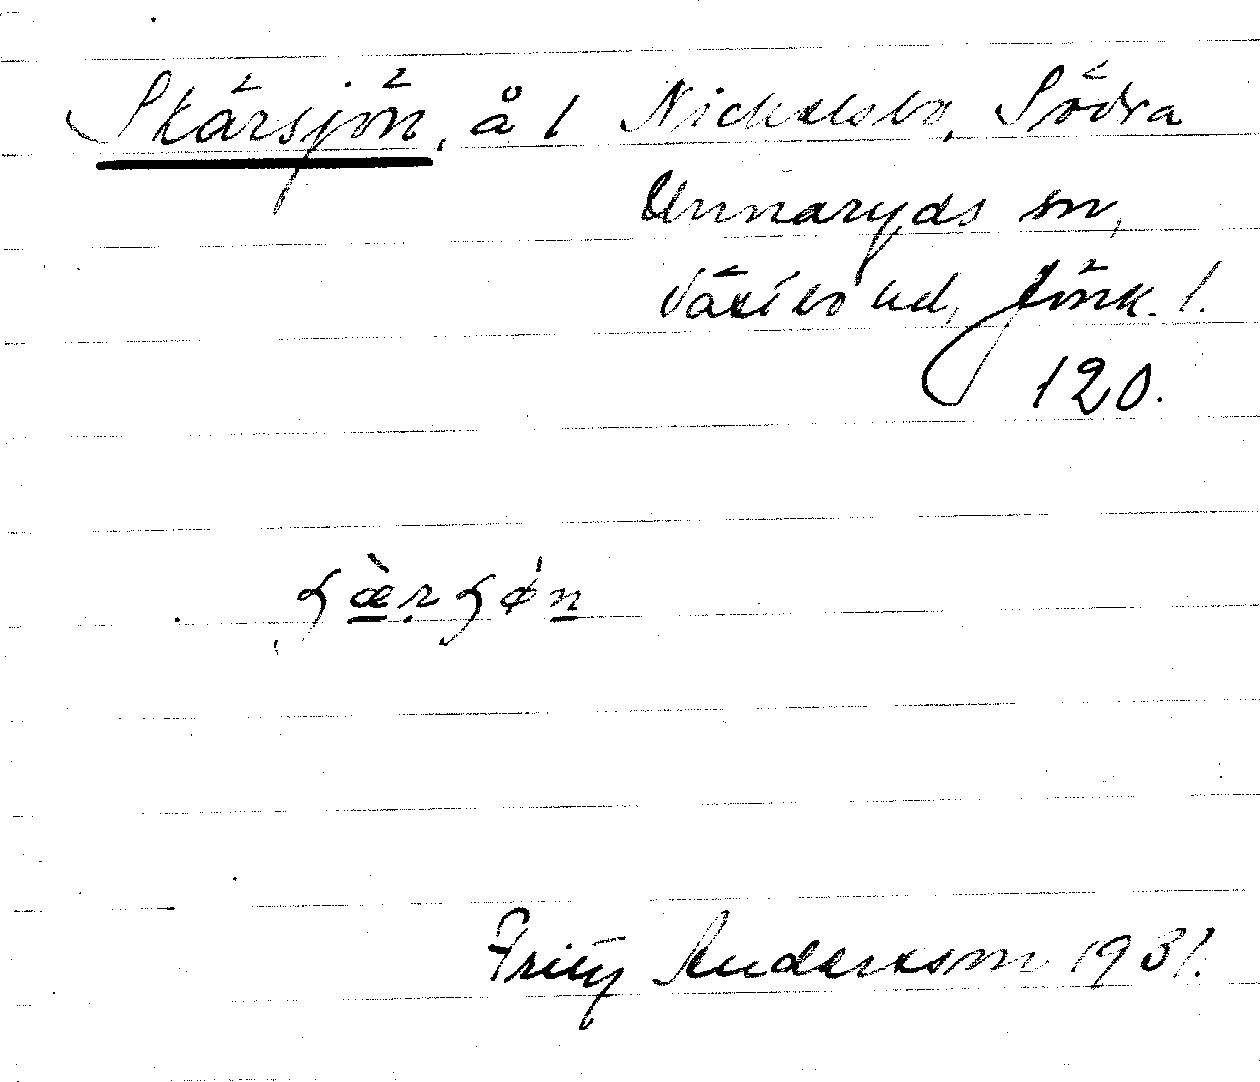 Skärsjön, å l Nickelsbo, Södra
Unnaryds sn,
Västbo hd, Jönk. l.
120.
Fritz Andersson 1931.